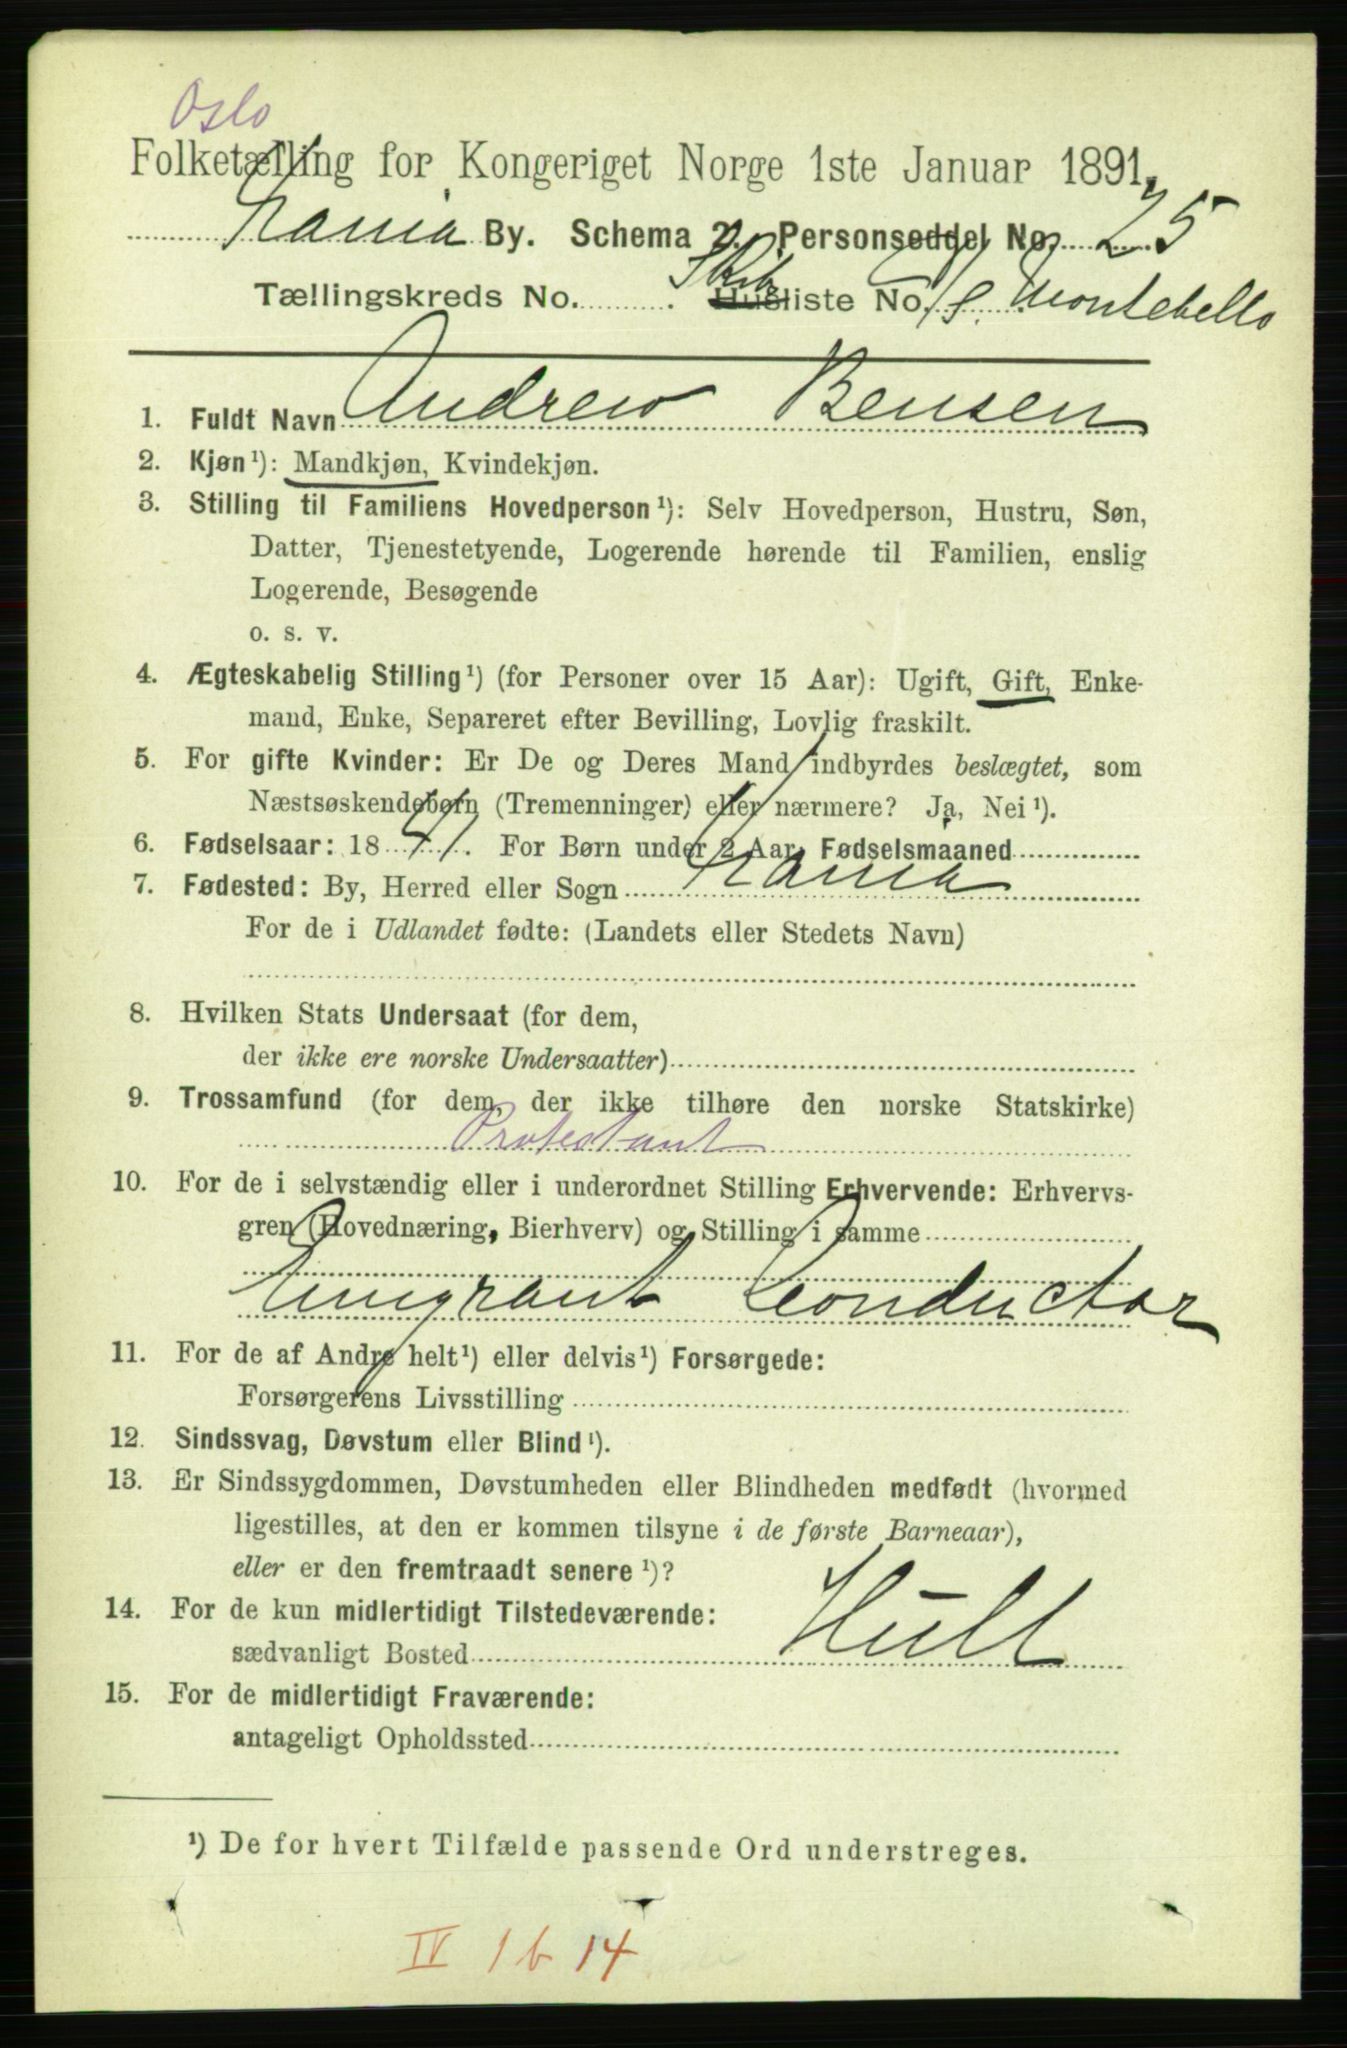 Oslo
Folketælling for Kongeriget Norge 1ste Januar 1891.
Krania By. Schema 2. Personseddel No. 25
Tællingskreds No. . Skibsliste No. D/S. Montebello
1. Fuldt Navn Andrew Bensen
2. Kjøn¹): Mandkjøn, Kvindekjøn.
3. Stilling til Familiens Hovedperson¹): Selv Hovedperson, Hustru, Søn,
Datter, Tjenestetyende, Logerende hørende til Familien, enslig
Logerende, Besøgende
o. s. v.
4. Ægteskabelig Stilling¹) (for Personer over 15 Aar): Ugift, Gift, Enke-
mand, Enke, Separeret efter Bevilling, Lovlig fraskilt.
5. For gifte Kvinder: Er De og Deres Mand indbyrdes beslægtet, som
Næstsøskendebørn (Tremenninger) eller nærmere? Ja, Nei¹).
6. Fødselsaar: 1841. For Børn under 2 Aar, Fødselsmaaned
7. Fødested: By, Herred eller Sogn Krania
For de i Udlandet fødte: (Landets eller Stedets Navn)
8. Hvilken Stats Undersaat (for dem,
der ikke ere norske Undersaatter)
9. Trossamfund (for dem, der ikke tilhøre den norske Statskirke)
Protestant
10. For de i selvstændig eller i underordnet Stilling Erhvervende: Erhvervs-
gren (Hovednæring, Bierhverv) og Stilling i samme
Emigrant Conductor
11. For de af Andre helt¹) eller delvis¹) Forsørgede:
Forsørgerens Livsstilling
12. Sindssvag, Døvstum eller Blind¹).
13. Er Sindssygdommen, Døvstumheden eller Blindheden medfødt (hvormed
ligestilles, at den er kommen tilsyne i de første Barneaar),
eller er den fremtraadt senere¹)?
14. For de kun midlertidigt Tilstedeværende:
sædvanligt Bosted Hull
15. For de midlertidigt Fraværende:
antageligt Opholdssted
¹) De for hvert Tilfælde passende Ord understreges.
IV 1 b 14